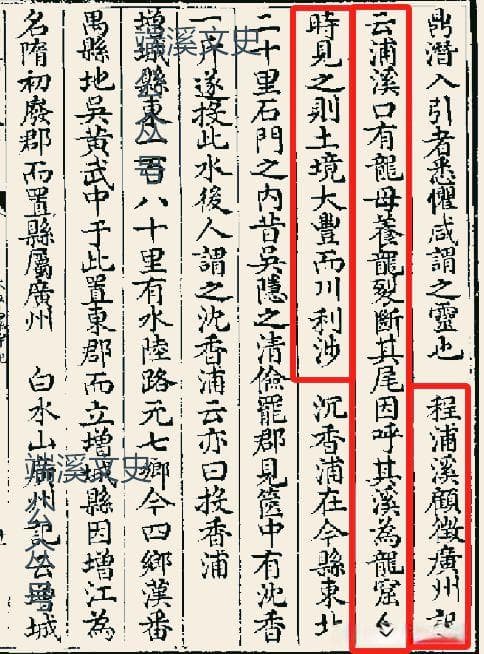 鼎潛入引者悉懼咸謂之靈也 程浦溪顧微廣州記
云浦溪口有龍母養龍裂斷其尾因呼其溪為龍窟人
時見之則土境大豐而川利涉 沉香浦在今縣東北
二十里石門之內昔吳隱之清儉罷郡見篋中有沈香
一斤遂投此水後人謂之沈香浦云亦曰投香浦
增城縣東一百八十里有水陸路元七鄉今四鄉漢番
禺縣地吳黃武中于此置東郡而立增城縣因增江為
名隋初廢郡而置縣屬廣州 白水山廣州記云增城
端溪文史
端溪文史